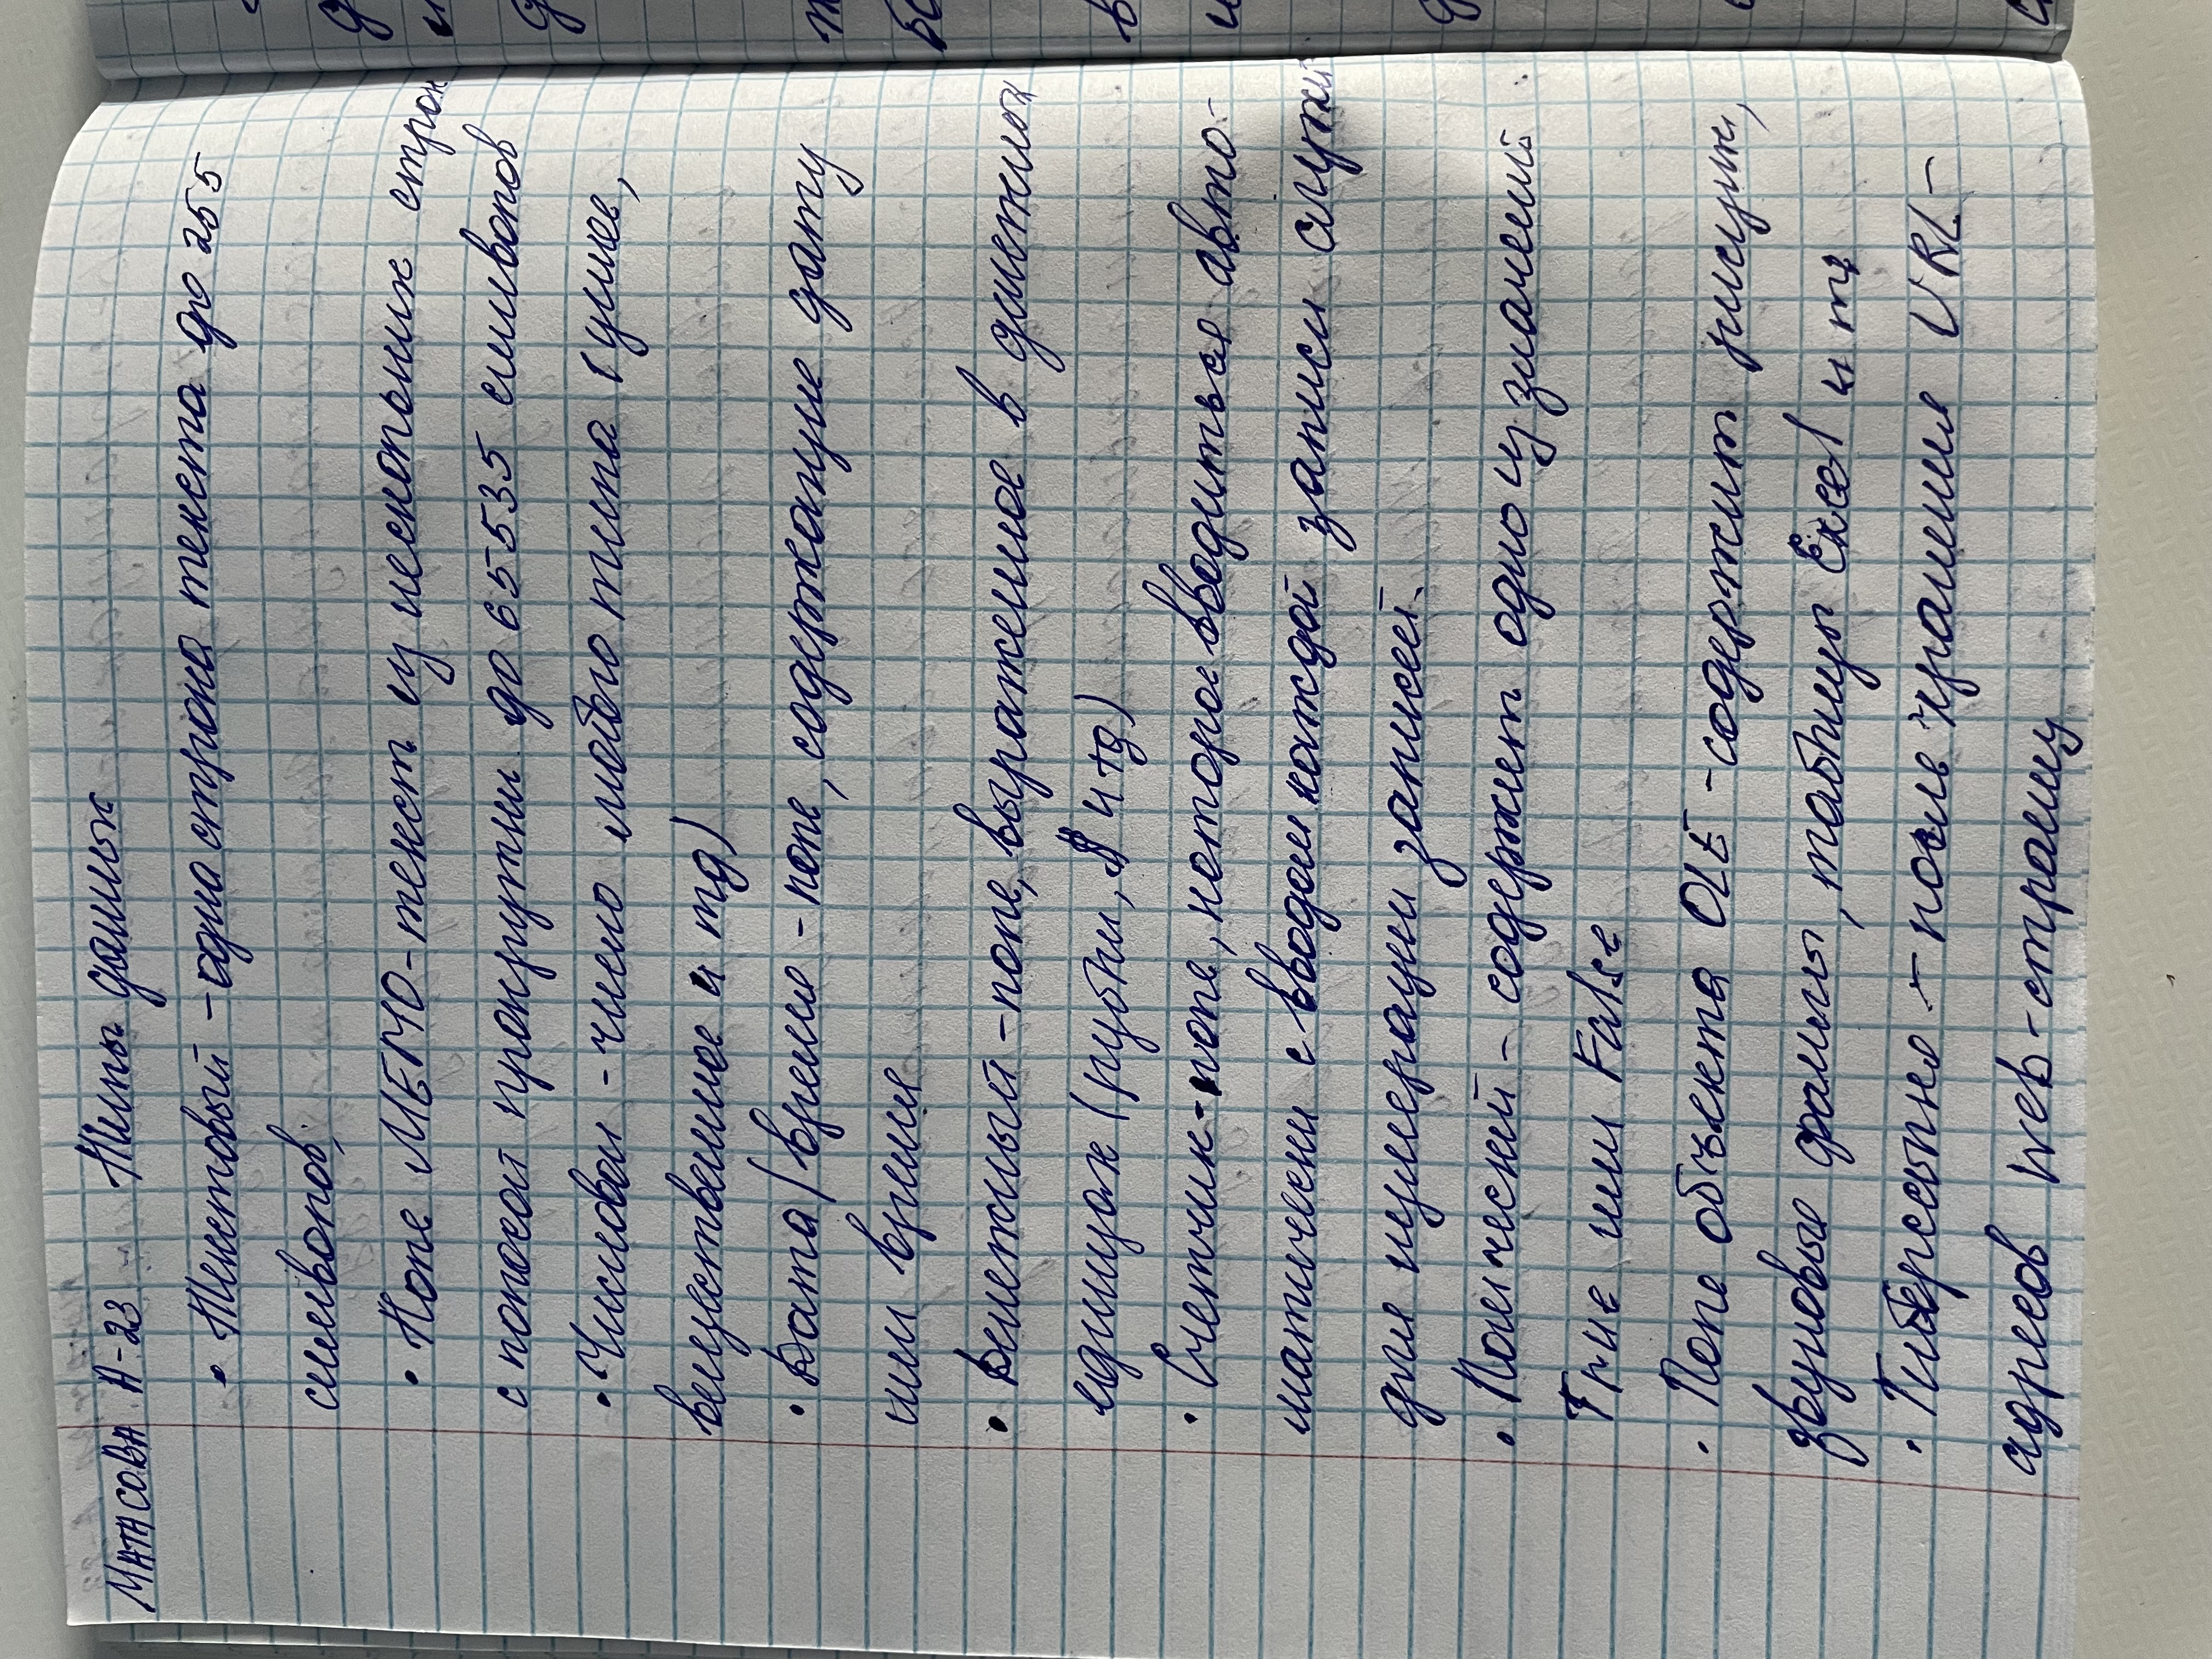 МАТАСОВА А-23 Типы данных
• Текстовый - одна строка текста до 255
символов,
• Поле МЕМО - текст из нескольких строк
с полосой прокрутки до 65535 символов
• Числовой - число любого типа (целое,
вещественное и тд)
• Дата / время - поле, содержащие дату
или время
• Денежный - поле, выраженное в денежных
единицах (рубли, $ и тд)
• Счетчик - поле, которое вводиться авто-
матически с вводом каждой записи служит
для нумерации записей.
• Логический - содержит одно из значений
True или False
• Поле объекта OLE - содержит рисунки,
звуковые файлы, таблицы Excel и тд
• Гиперссылка - поле хранения URL -
адресов web-страниц